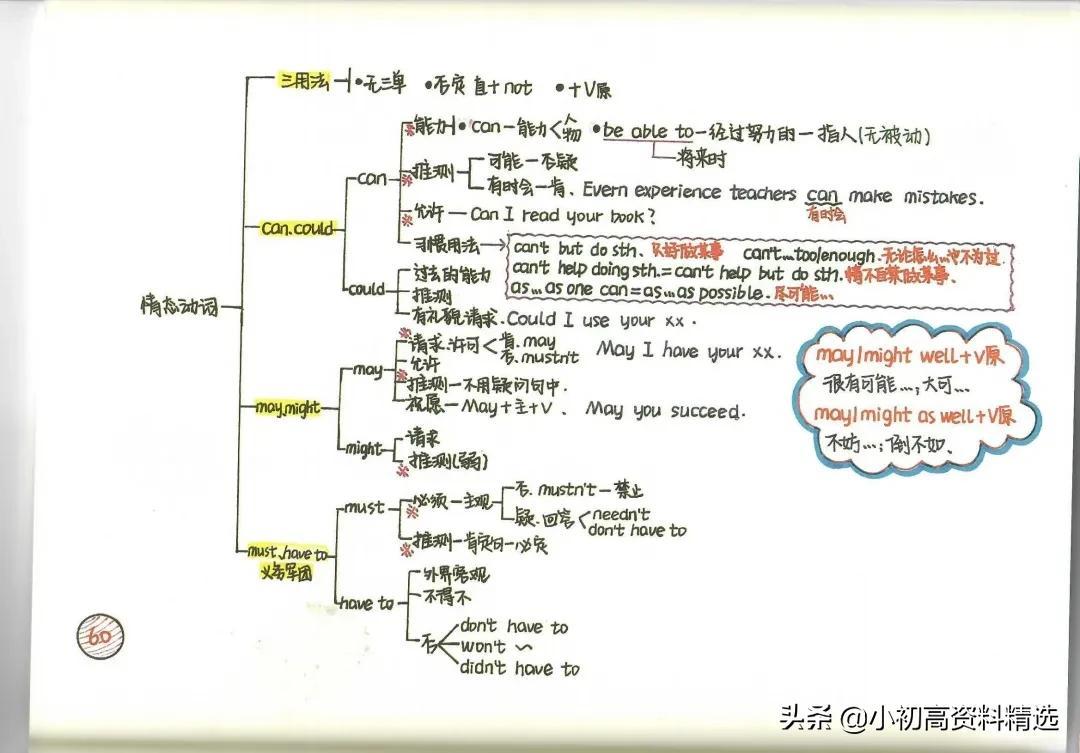 三用法 •无三单 •否定 直+not •+V原
能力 •can—能力<人 物 •be able to—经过努力的—指人(无被动)
将来时
推测 可能—否疑
can
有时会—肯、Evern experience teachers can make mistakes.
有时会
允许—Can I read your book?
can.could
习惯用法→ can't but do sth. 只好做某事 can't...too/enough.无论怎么...也不为过.
can't help doing sth.=can't help but do sth.情不自禁做某事.
as...as one can=as...as possible.尽可能...
过去的能力
could 推测
有礼貌请求.Could I use your xx.
情态动词
请求.许可<肯.may 否.mustn't May I have your xx.
may 允许
推测—不用疑问句中.
祝愿—May+主+V、 May you succeed.
may.might
might 请求
推测(弱)
may/might well+V原
很有可能...;大可...
may/might as well+V原
不妨...;倒不如、
must 必须—主观 否.mustn't—禁止
疑.回答<needn't don't have to
推测—肯定句—必定
must、have to
义务军团
外界客观
have to 不得不
否 don't have to
won't ~
didn't have to
60
头条 @小初高资料精选